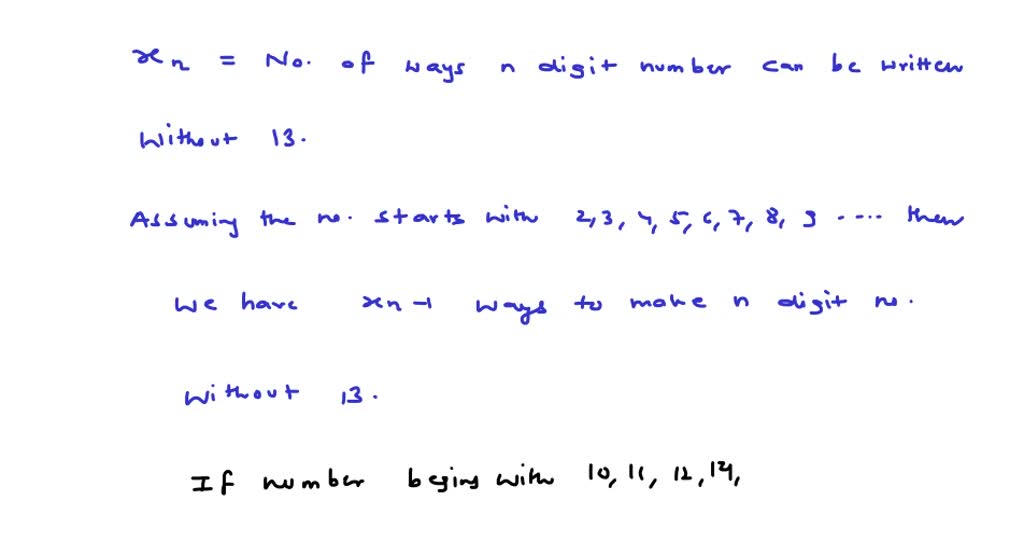 xn = No. of ways n digit number can be written
without 13.
Assuming the no. starts with 2,3, 4, 5, 6, 7, 8, 9 ..... then
we have xn-1 ways to make n digit no.
without 13.
If number begins with 10, 11, 12, 14,